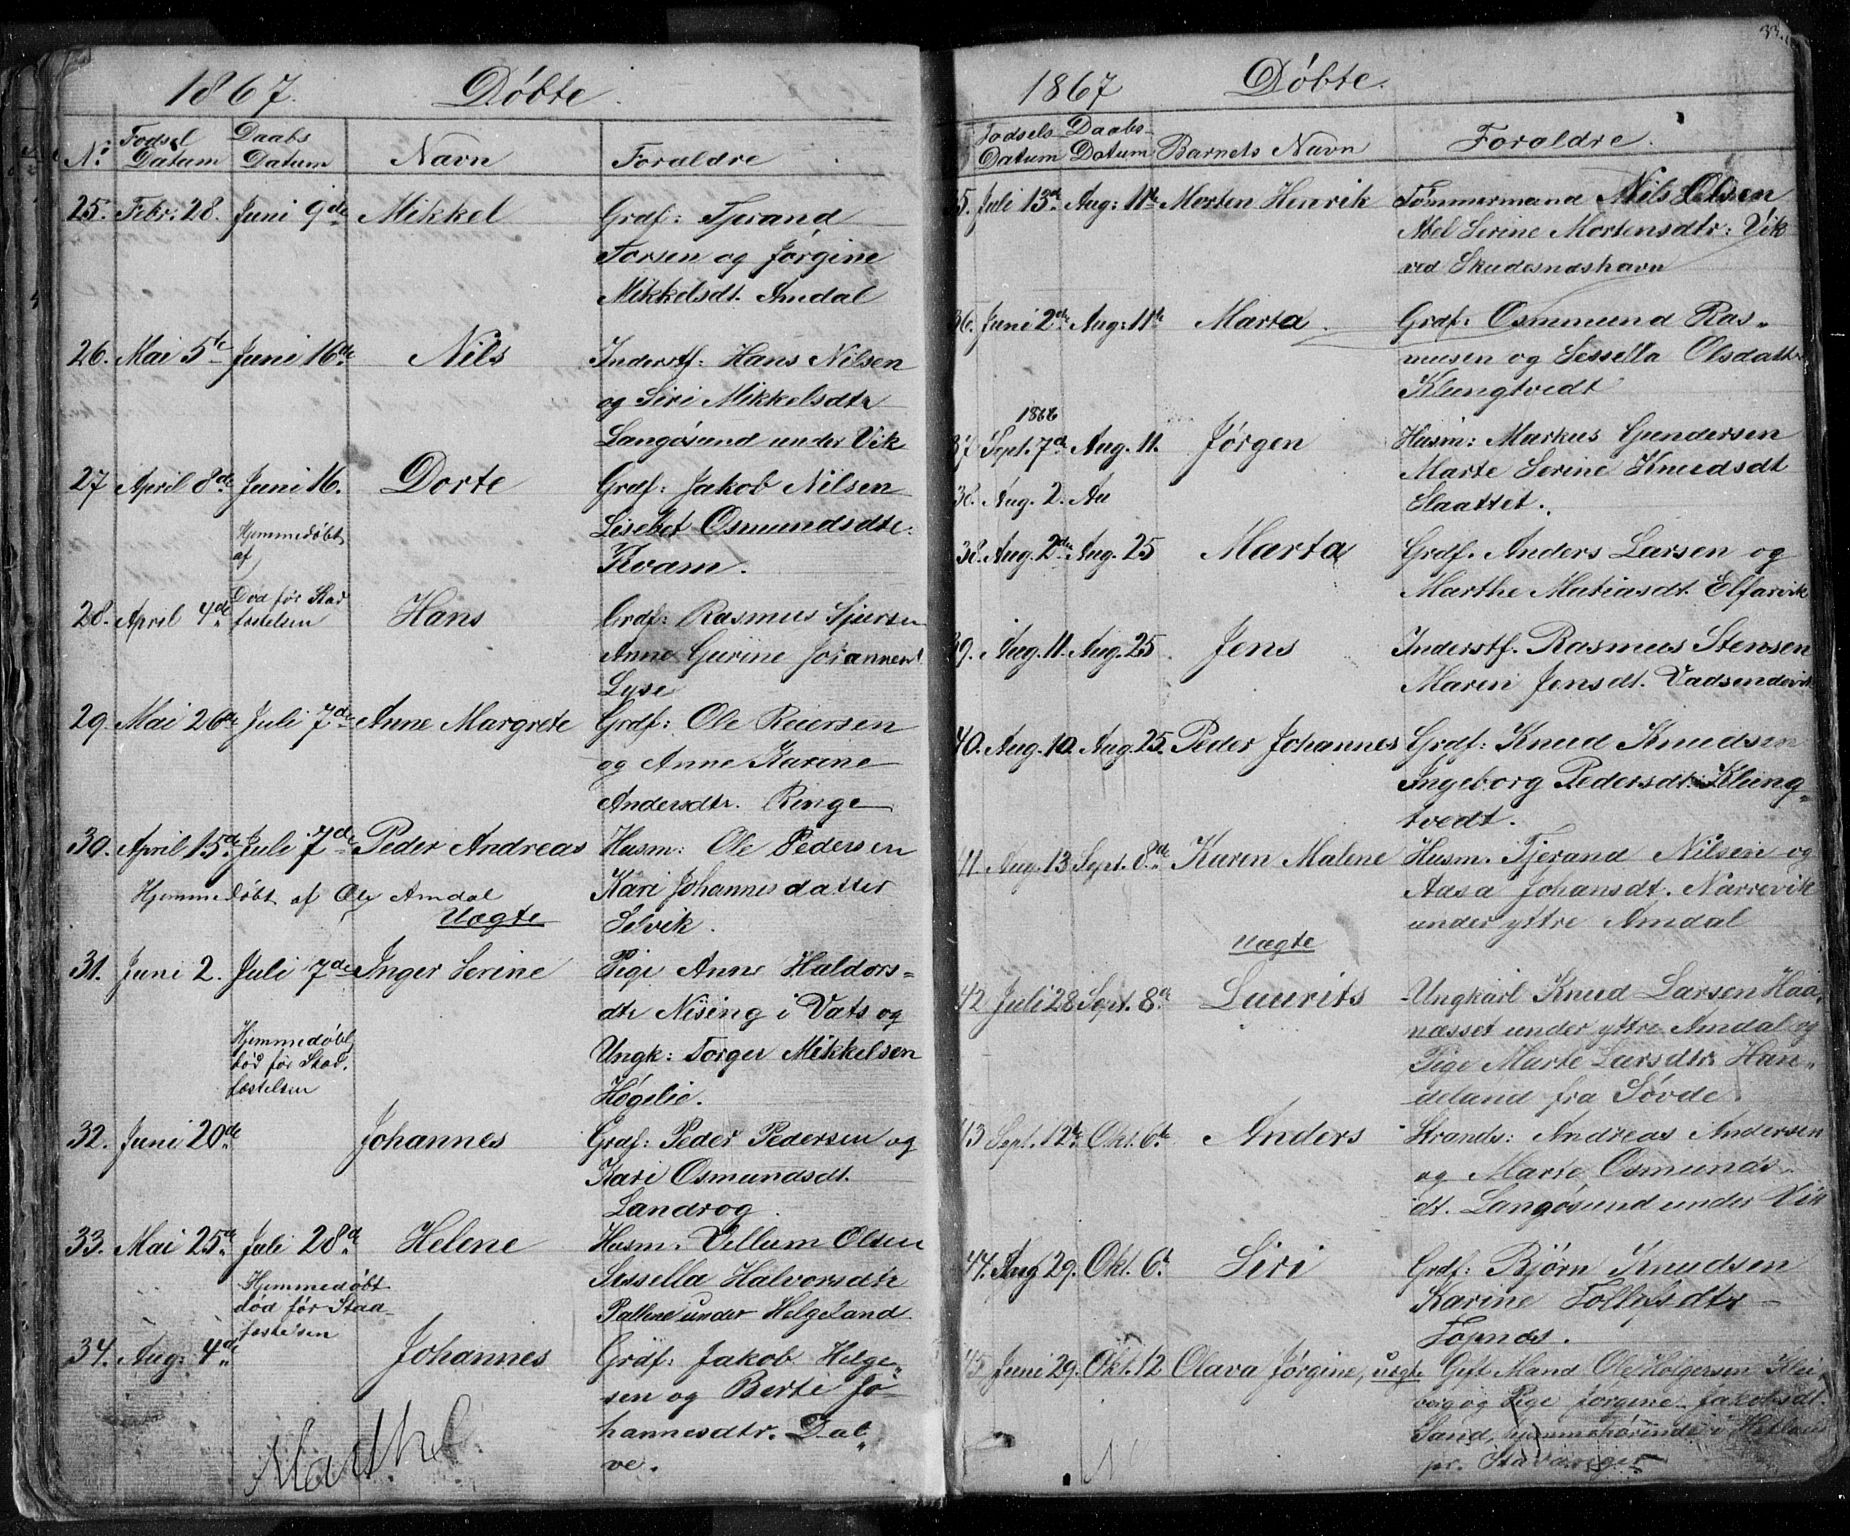 1867. Døbte.
No. Fødsel Datum Daabs Datum Navn Forældre
25. Febr. 28. Juni 9de Mikkel Grdf: Tjerand
Torsen og Jørgine
Mikkelsdt. Amdal
26. Mai 5te Juni 16de Nils Inderstf: Hans Nilsen
og Siri Mikkelsdtr
Langøsund under Vik
27 April 8de Juni 16. Dorte Grdf: Jakob Nilsen
Lisebet Osmundsdtr.
Kvam.
Hjemmedøbt
af
28. April 4de Død før Stad
fæstelsen Hans Grdf: Rasmus Sjursen
Anne Gurine
Lyse
29. Mai 26de Juli 7de Anne Margrete Grdf: Ole Reiersen
og Anne Karine
Andersdtr. Ringe
30. April 15de Juli 7de Peder Andreas Husm: Ole Pedersen
Kari Johannesdatter
Selvik.
Hjemmedøbt af Ole Amdal
Uægte
31. Juni 2. Juli 7de Inger Serine Pige Anne Haldors-
dtr Nising i Vats og
Ungk: Torger Mikkelsen
Høgelie.
Hjemmedøbt
død før Stad.
fæstelsen
32. Juni 20de Johannes Graf: Peder Pedersen og
Kari Osmundsdt.
Landrog.
33. Mai 25de Juli 28de Helene Husm: Vellum Olsen
Sessella Halvorsdtr
under Helgeland
Hjemmedøbt
død før Staa
fæstelsen
34. Aug. 4de Johannes Grdf: Jakob Helge-
sen og Berte Jo-
hannesdtr. Dal-
ve.
Marthe
33.
1867 Døbte.
Fødsels Datum Daabs Datum Barnets Navn Forældre.
35. Juli 13de Aug: 11te Morten Henrik Tømmermand Nils Olsen
Abel Serine Mortensdtr: Vik
ved Skudesnæshavn
36. Juni 2de Aug: 11te Marta. Grdf: Osmmund Ras-
musen og Sessella Olsdatter
Klungtvedt
1866
37. Sept. 7de Aug. 11. Jørgen Husm: Markus Gundersen
Marte Serine Knudsdt
Slaattet.
38. Aug. 2. Au
38. Aug. 2den Aug. 25 Marta Grdf. Anders Larsen og
Marthe Matiasdt. Elfarvik
39. Aug. 11. Aug. 25. Jens Inderstf. Rasmus Stensen
Maren Jensdt. Vadsendevik
40. Aug. 10. Aug. 25. Peder Johannes Grdf: Knud Knudsen
Ingeborg Pedersdt: Klung-
tvedt.
41. Aug. 13 Sept. 8de Karen Malene Husm. Tjerand Nilsen og
Aasa Johansdt. Narrevik
under yttre Amdal
uægte
42 Juli 28 Sept. 8de Laurits Ungkarl Knud Larsen Haa-
næsset under yttre Amdal og
Pige Marte Larsdtr. Han-
deland fra Søvde.
43 Sept. 12te Okt. 6te Anders Strands: Andreas Andersen
og Marte Osmunds-
dt. Langøsund under Vik
44. Aug 29. Okt. 6te Siri Grdf: Bjørn Knudsen
Karine Tollefsdtr
Topnæs.
45 Juni 29. Okt. 12 Olava Jørgine, uægte Gift Mand Ole Holgersen Klei
berg og Pige Jorgine Jakobsdt.
Sand, hjemmehørende i Hetland
pr. Stavanger